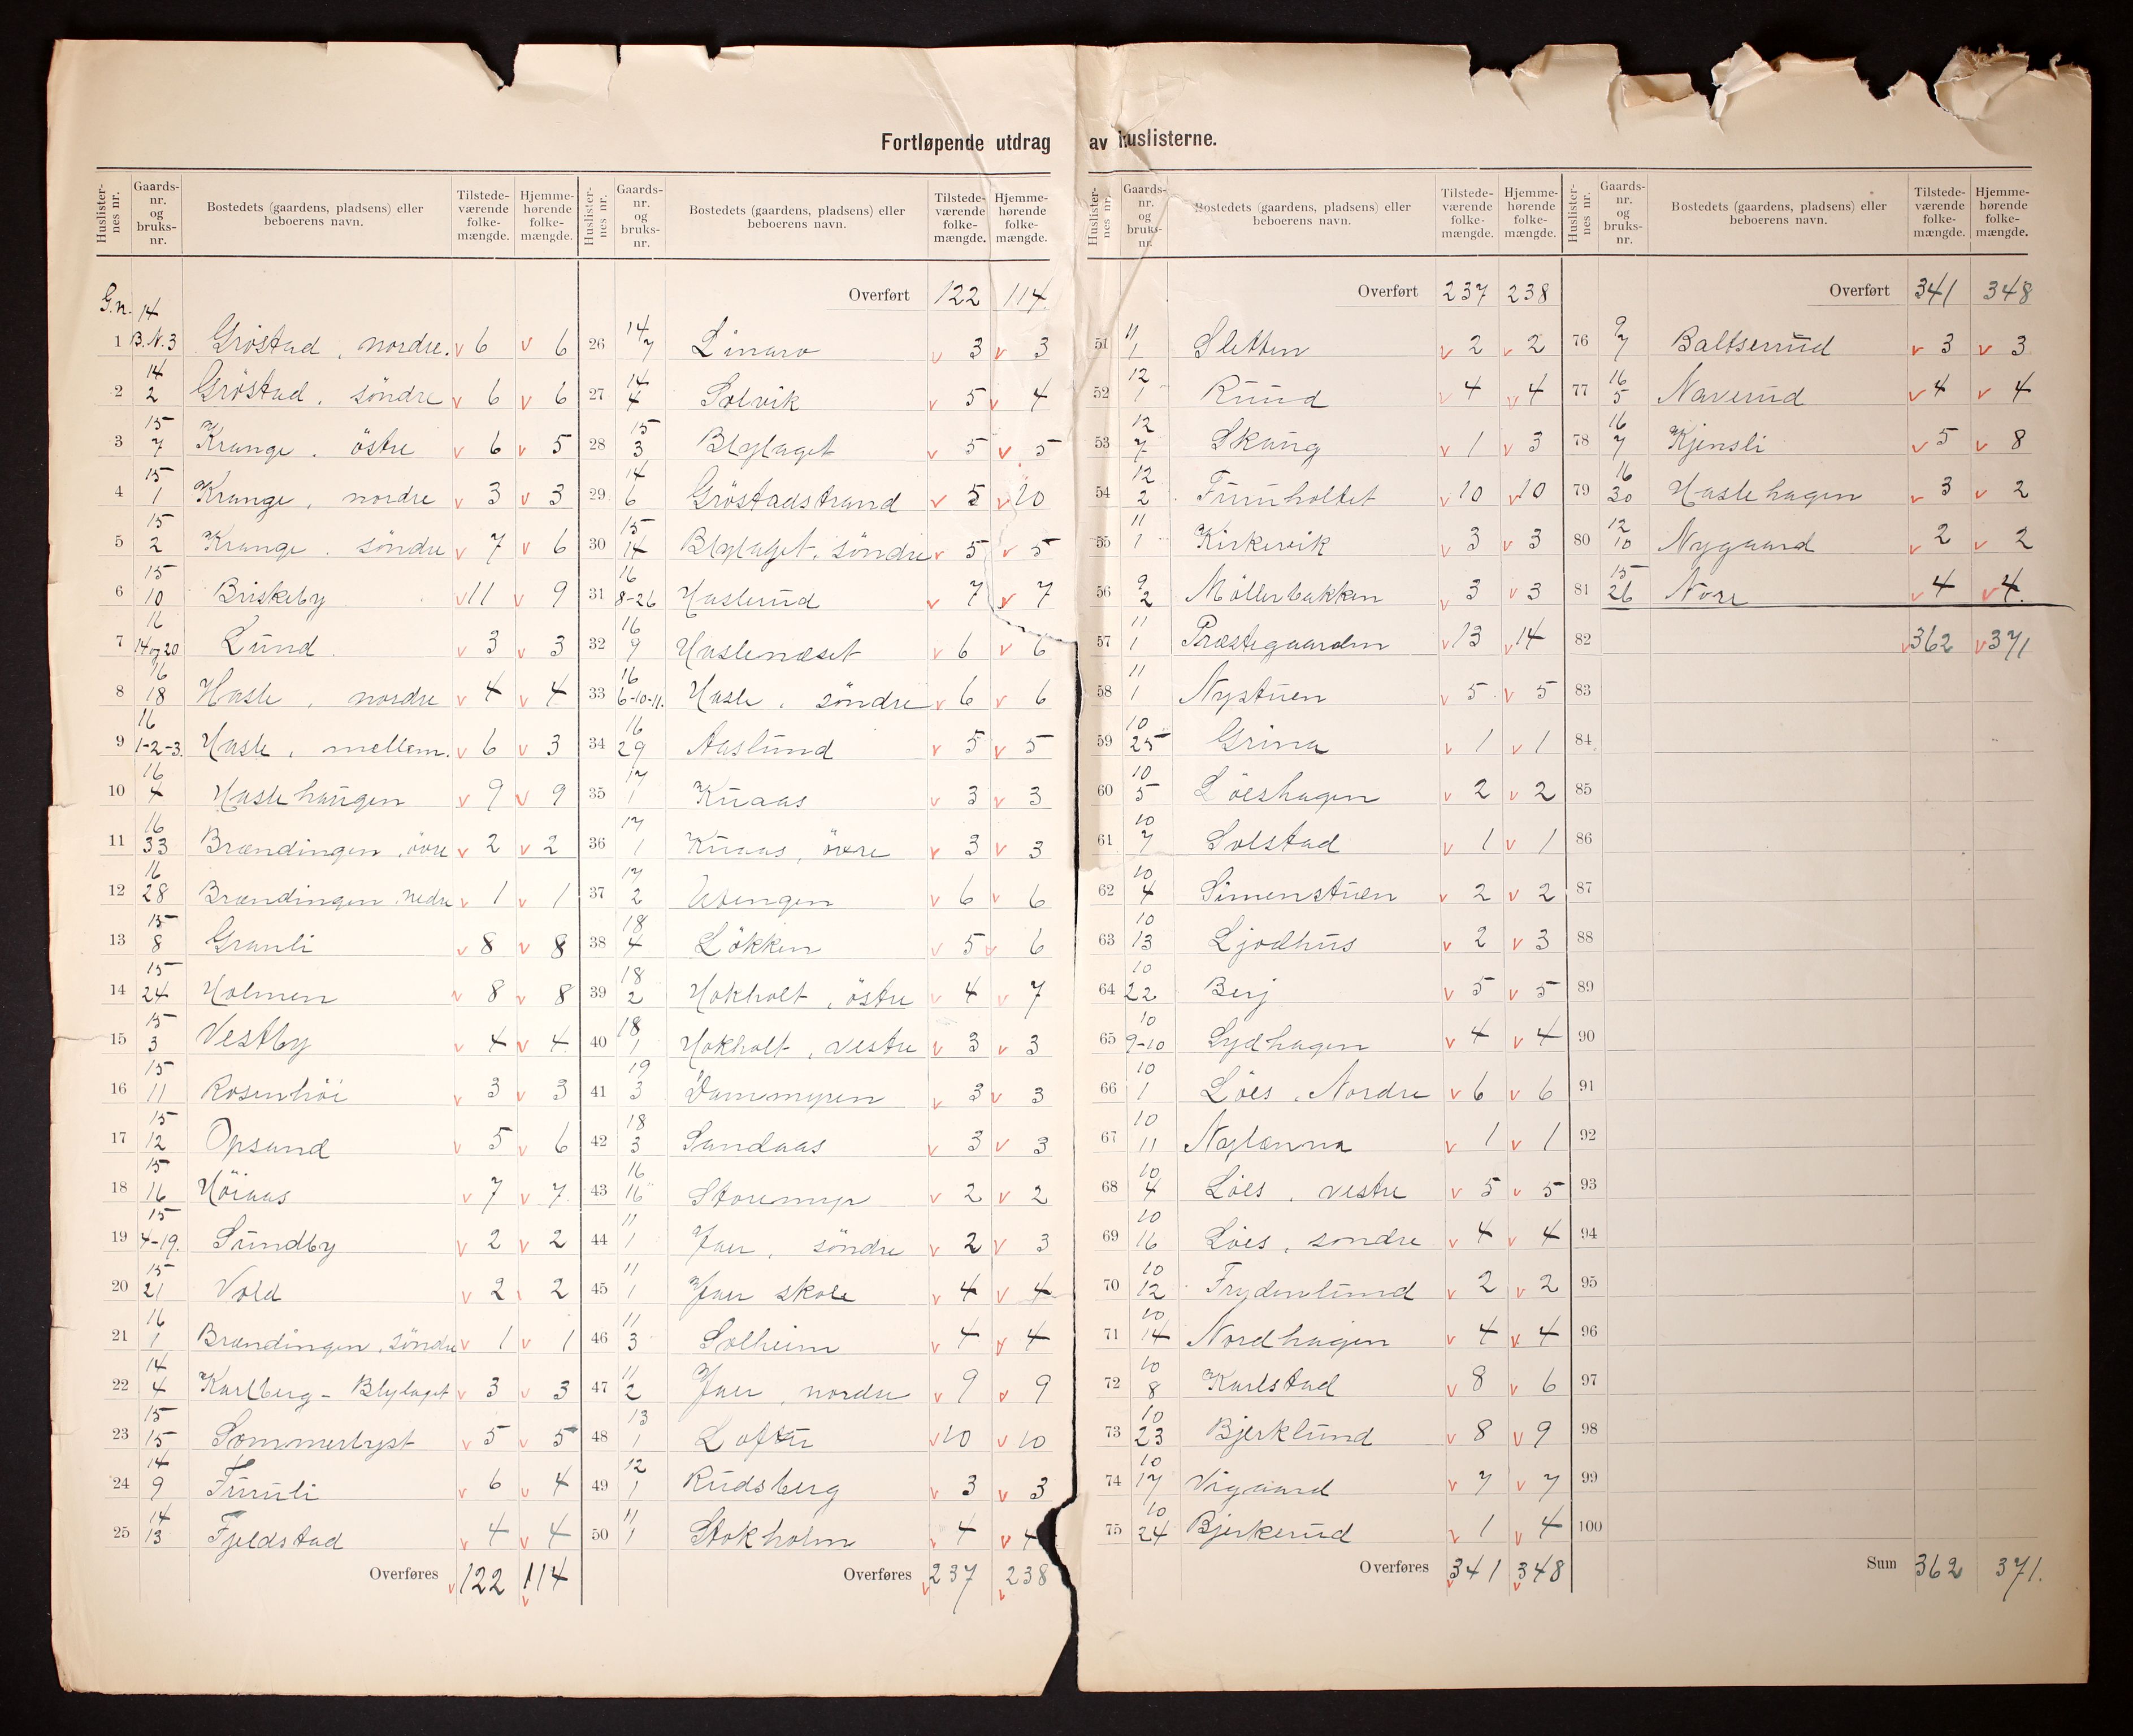 Fortløpende utdrag av huslisterne.
Huslisternes nr. Gaards-nr. og bruks-nr. Bostedets (gaardens, pladsens) eller beboerens navn. Tilstede-værende folke-mængde. Hjemme-hørende folke-mængde.
G.n. 14
1 B.N.3 Gröstad, nordre. 6 6
2 14 2 Gröstad, söndre 6 6
3 15 7 Krange, östre 6 5
4 15 1 Krange, nordre 3 3
5 15 2 Krange, söndre 7 6
6 15 10 Briskeby 11 9
7 16 14 og 20 Lund. 3 3
8 16 18 Hasle, nordre 4 4
9 16 1-2-3. Hasle, mellem. 6 3
10 16 4 Haslehaugen 9 9
11 16 33 Brændingen, övre 2 2
12 16 28 Brændingen, nedre 1 1
13 15 8 Granli 8 8
14 15 24 Holmen 8 8
15 15 3 Vestby 4 4
16 15 11 Rosenhöi 3 3
17 15 12 Opsand 5 6
18 15 16 Höiaas 7 7
19 15 4-19. Sundby 2 2
20 15 21 Vold 2 2
21 16 1 Brændingen, söndre 1 1
22 14 4 Karlberg - Blylaget 3 3
23 15 15 Sommerlyst 5 5
24 14 9 Furuli 6 4
25 14 13 Fjeldstad 4 4
Overføres 122 114
Huslisternes nr. Gaards-nr. og bruks-nr. Bostedets (gaardens, pladsens) eller beboerens navn. Tilstede-værende folke-mængde. Hjemme-hørende folke-mængde.
Overført 122 114.
26 14 7 Linaro 3 3
27 14 4 Solvik 5 4
28 15 3 Blylaget 5 5
29 14 6 Gröstadstrand 5 10
30 15 14 Blylaget, söndre 5 5
31 16 8-26 Haslerud 7 7
32 16 9 Haslenæset 6 6
33 16 6-10-11. Hasle, söndre 6 6
34 16 29 Aaslund 5 5
35 17 1 Knaas 3 3
36 17 1 Knaas, övre 3 3
37 17 2 Ubengen 6 6
38 18 4 Lökken 5 6
39 18 2 Hokholt, östre 4 7
40 18 1 Hokholt, vestre 3 3
41 19 3 Dammyren 3 3
42 18 3 Sandaas 3 3
43 16 16 Storemyr 2 2
44 11 1 Jaer, söndre 2 3
45 11 1 Jaer skole 4 4
46 11 3 Solheim 4 4
47 11 2 Jaer, nordre 9 9
48 13 1 Loftu 10 10
49 12 1 Rudsberg 3 3
50 11 1 Stokholm 4 4
Overføres 237 238
Huslisternes nr. Gaards-nr. og bruks-nr. Bostedets (gaardens, pladsens) eller beboerens navn. Tilstede-værende folke-mængde. Hjemme-hørende folke-mængde.
Overført 237 238
51 11 1 Sletten 2 2
52 12 1 Ruud 4 4
53 12 7 Skaug 1 3
54 12 2 Furuholtet 10 10
55 11 1 Kirkevik 3 3
56 9 2 Möllerbakken 3 3
57 11 1 Præstegaarden 13 14
58 11 1 Nystuen 5 5
59 10 25 Grina 1 1
60 10 5 Löeshagen 2 2
61 10 7 Solstad 1 1
62 10 4 Simenstuen 2 2
63 10 13 Ljodhus 2 3
64 10 22 Berj 5 5
65 10 9-10 Sydhagen 4 4
66 10 1 Löes, Nordre 6 6
67 10 11 Nylænna 1 1
68 10 4 Löes, vestre 5 5
69 10 16 Löes, söndre 4 4
70 10 12 Frydenlund 2 2
71 10 14 Nordhagen 4 4
72 10 8 Karlstad 8 6
73 10 23 Bjerklund 8 9
74 10 17 Vigaard 7 7
75 10 24 Bjerkerud 1 4
Overføres 341 348
Huslisternes nr. Gaards-nr. og bruks-nr. Bostedets (gaardens, pladsens) eller beboerens navn. Tilstede-værende folke-mængde. Hjemme-hørende folke-mængde.
Overført 341 348
76 9 7 Baltserud 3 3
77 16 5 Naverud 4 4
78 16 7 Kjensli 5 8
79 16 30 Haslehagen 3 2
80 12 10 Nygaard 2 2
81 15 26 Nore 4 4.
82 362 371
83
84
85
86
87
88
89
90
91
92
93
94
95
96
97
98
99
100
Sum 362 371.